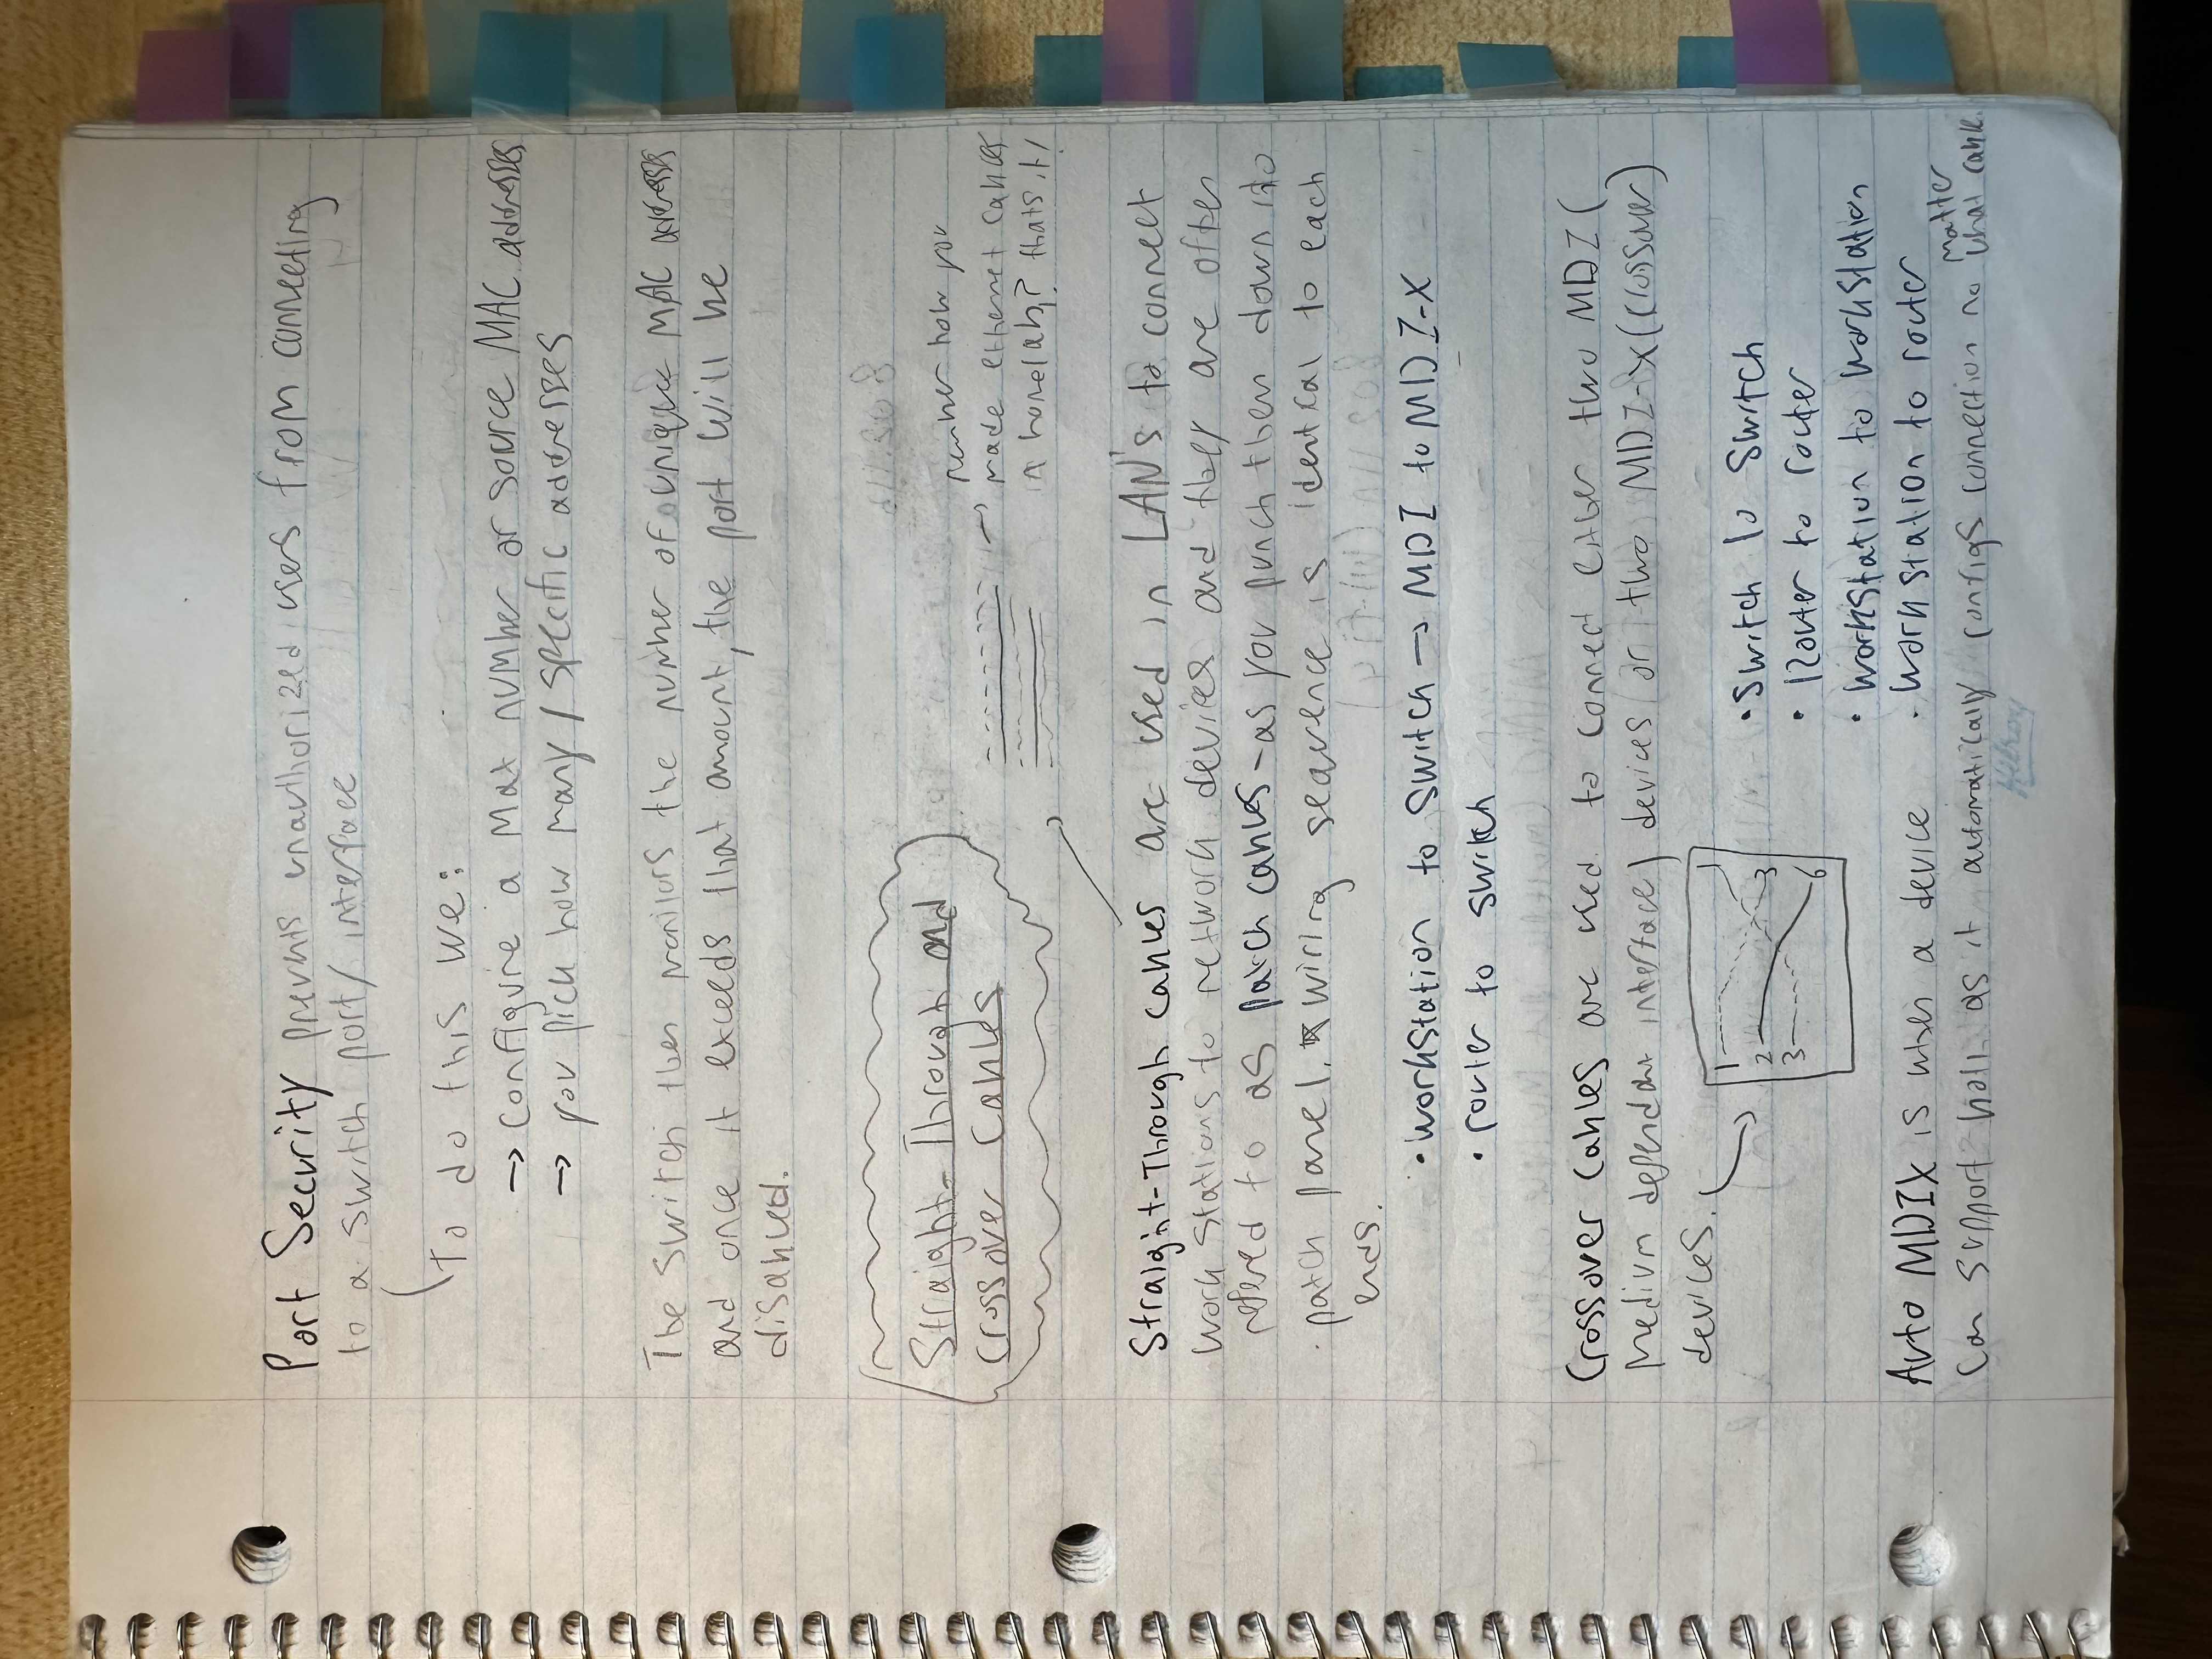 Port Security prevents unauthorized users from connecting
to a switch port/interface
To do this we:
→ Configure a Max number or source MAC addresses
→ you pick how many / specific addresses
The switch then monitors the number of unique MAC addresses
and once it exceeds that amount, the port will be
disabled.
Straight-Through and
Crossover Cables
how you
made ethernet cables
homelab? thats it!
Straight-Through cables are used in LAN's to connect
work stations to network devices and they are often
refered to as patch cables - as you punch them down into
patch panel. * wiring sequence is identical to each
ends.
• workstation to switch → MDI to MDI-X
• router to switch
Crossover Cables are used to connect either two MDI (
Medium dependant interface) devices or two MDI-X (crossover)
devices.
1 1
2 3
3 6
• Switch to Switch
• Router to router
• Workstation to workstation
• Work station to router
Auto MDIX is when a device
can support both as it automatically configs connection no matter what cable.
Hilroy